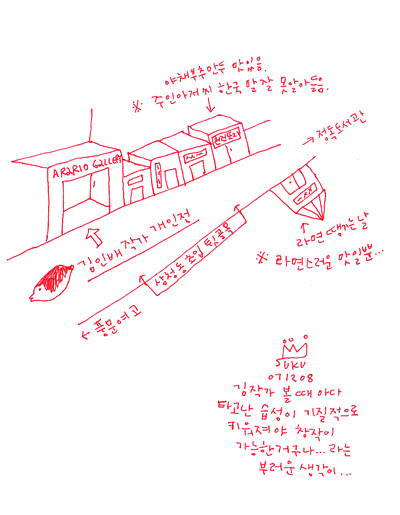 야채부추만두 맛있음.
※ 주인아저씨 한국말 잘 못알아들음.
→ 정독도서관
ARARIO GALLERY
김인배 작가 개인전
삼청동초입 뒷골목
라면 땡기는날
※ 라면스러운 맛일뿐...
← 풍문여고
SUKU
071208
김작가 볼때마다
타고난 습성이 기질적으로
키워져야 창작이
가능한거구나... 라는
부러운 생각이...